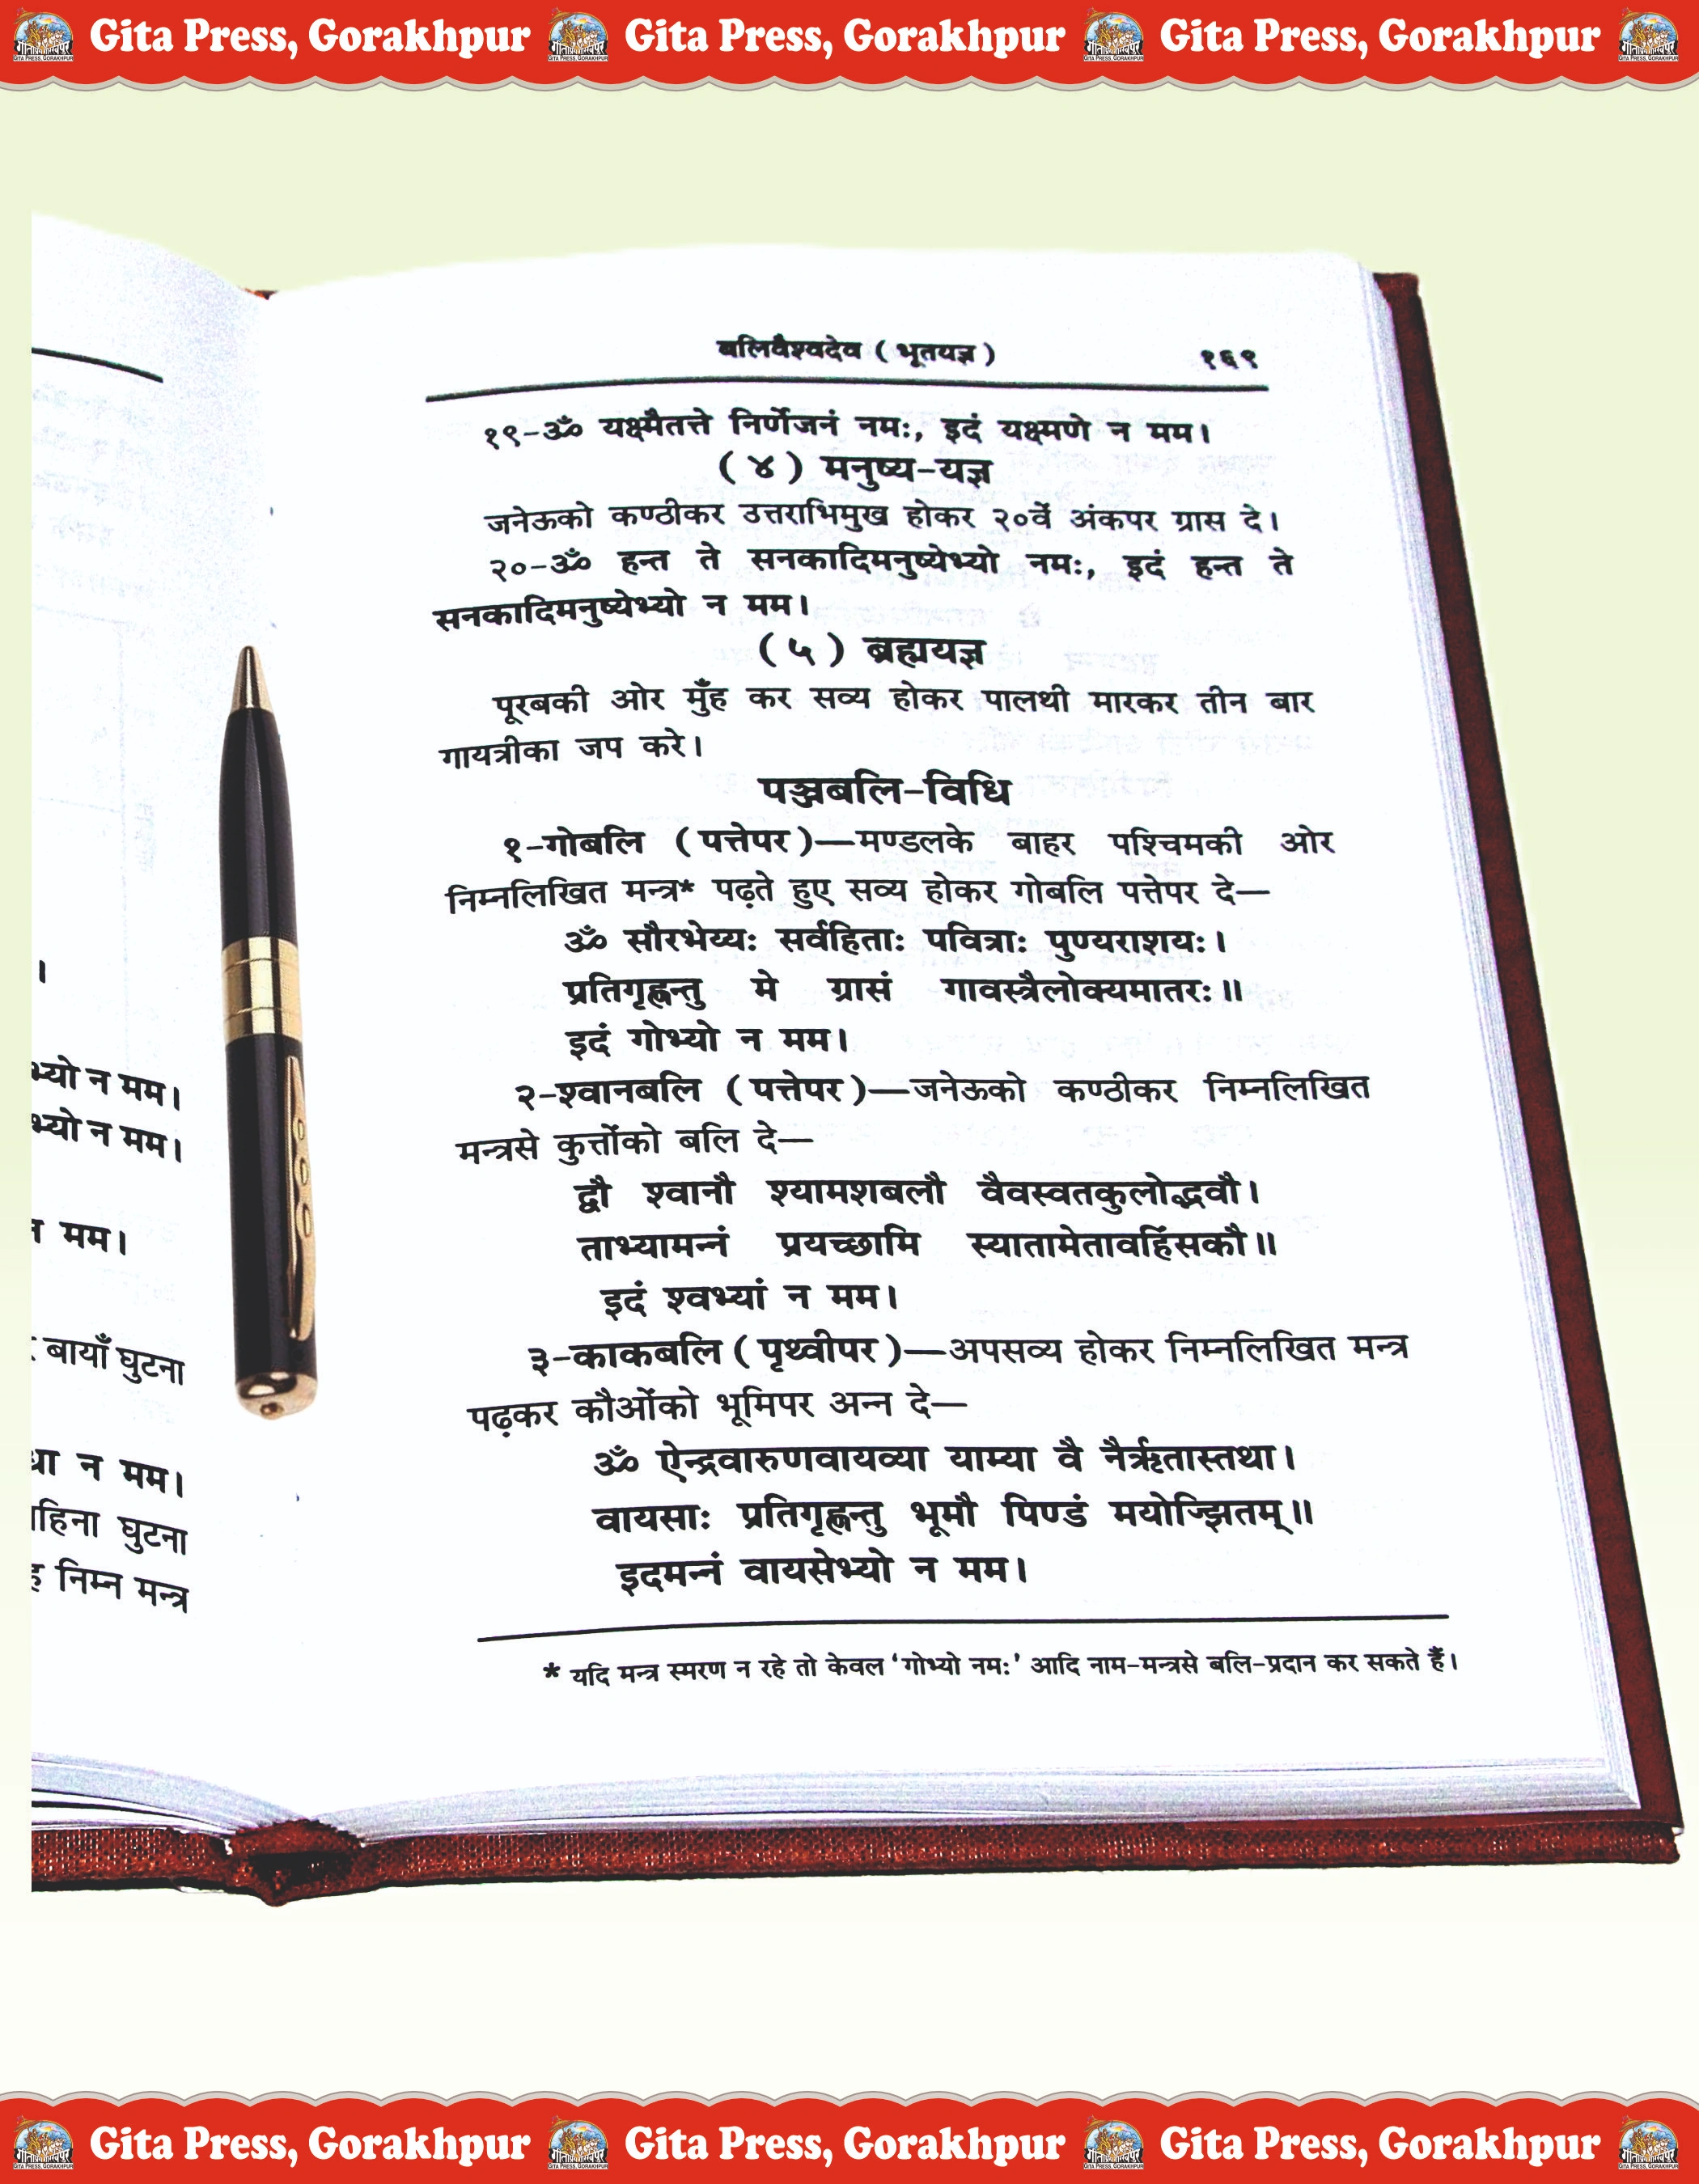 Gita Press, Gorakhpur Gita Press, Gorakhpur Gita Press, Gorakhpur
बलिवैश्वदेव ( भूतयज्ञ ) १६९
१९-ॐ यक्ष्मैतत्ते निर्णेजनं नमः, इदं यक्ष्मणे न मम।
( ४ ) मनुष्य-यज्ञ
जनेऊको कण्ठीकर उत्तराभिमुख होकर २०वें अंकपर ग्रास दे।
२०-ॐ हन्त ते सनकादिमनुष्येभ्यो नमः, इदं हन्त ते
सनकादिमनुष्येभ्यो न मम।
( ५ ) ब्रह्मयज्ञ
पूरबकी ओर मुँह कर सव्य होकर पालथी मारकर तीन बार
गायत्रीका जप करे।
पञ्चबलि-विधि
१-गोबलि ( पत्तेपर )—मण्डलके बाहर पश्चिमकी ओर
निम्नलिखित मन्त्र* पढ़ते हुए सव्य होकर गोबलि पत्तेपर दे—
ॐ सौरभेय्यः सर्वहिताः पवित्राः पुण्यराशयः।
प्रतिगृह्णन्तु मे ग्रासं गावस्त्रैलोक्यमातरः॥
इदं गोभ्यो न मम।
२-श्वानबलि ( पत्तेपर )—जनेऊको कण्ठीकर निम्नलिखित
मन्त्रसे कुत्तोंको बलि दे—
द्वौ श्वानौ श्यामशबलौ वैवस्वतकुलोद्भवौ।
ताभ्यामन्नं प्रयच्छामि स्यातामेतावहिंसकौ॥
इदं श्वभ्यां न मम।
३-काकबलि ( पृथ्वीपर )—अपसव्य होकर निम्नलिखित मन्त्र
पढ़कर कौओंको भूमिपर अन्न दे—
ॐ ऐन्द्रवारुणवायव्या याम्या वै नैर्ऋतास्तथा।
वायसाः प्रतिगृह्णन्तु भूमौ पिण्डं मयोज्झितम्॥
इदमन्नं वायसेभ्यो न मम।
* यदि मन्त्र स्मरण न रहे तो केवल ‘गोभ्यो नमः’ आदि नाम-मन्त्रसे बलि-प्रदान कर सकते हैं।
।
भ्यो न मम।
भ्यो न मम।
न मम।
बायाँ घुटना
न मम।
घुटना
निम्न मन्त्र
Gita Press, Gorakhpur Gita Press, Gorakhpur Gita Press, Gorakhpur